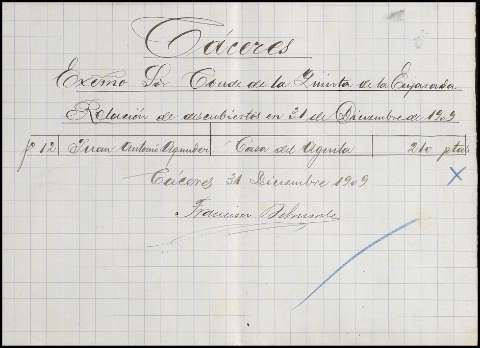 Cáceres
Exmo Sr. Conde de la Quinta de la Enjarada
Relación de descubiertos en 31 de Diciembre de 1909
fº 12 Juan Antonio Casa del Aguila 210 ptas
Cáceres 31 Diciembre 1909
Francisco